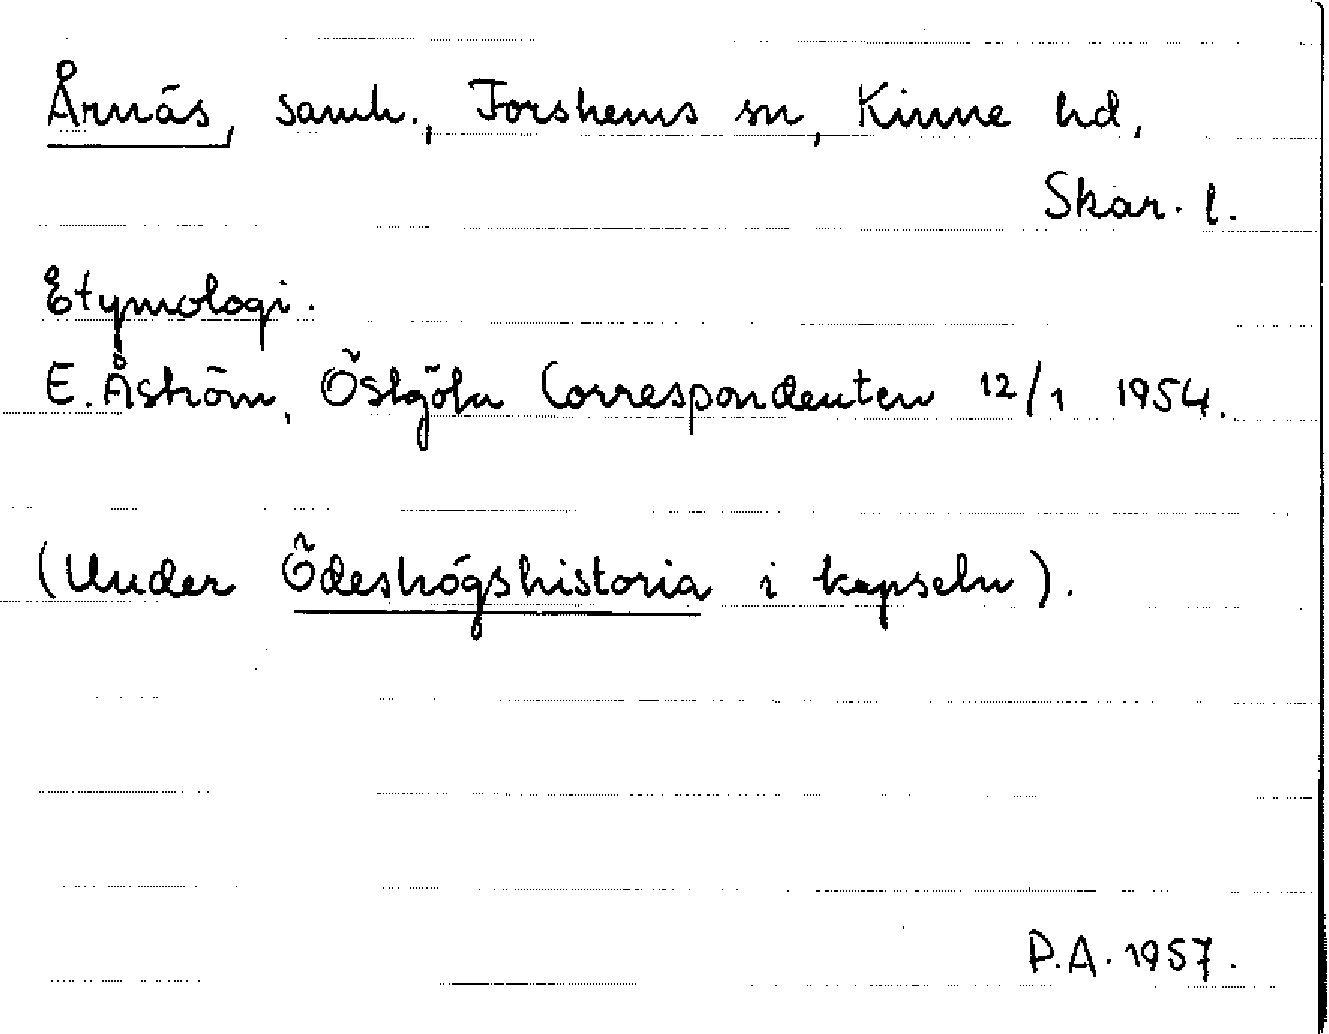 Årnäs, samh., Forshems sn, Kinne hd,
Skar. l.
Etymologi.
E. Åström, Östgöta Correspondenten 12/1 1954.
(Under Ödeshögshistoria i kapseln).
P.A. 1957.